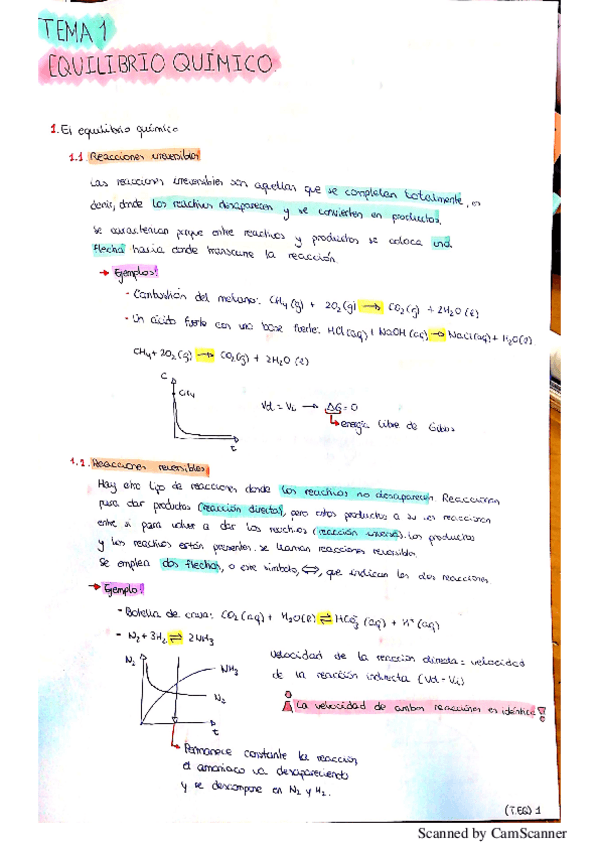 TEMA 1
EQUILIBRIO QUÍMICO
1. El equilibrio químico
1.1 Reacciones irreversibles
Las reacciones irreversibles son aquellas que se completan totalmente, es
decir, donde los reactivos desaparecen y se convierten en productos.
Se caracterizan porque entre reactivos y productos se coloca una
flecha hacia donde transcurre la reacción.
→ Ejemplos!
- Combustión del metano: CH4 (g) + 2O2 (g) → CO2 (g) + 2H2O (l)
- Un ácido fuerte con una base fuerte: HCl (aq) + NaOH (aq) → NaCl (aq) + H2O (l)
CH4 + 2O2 (g) → CO2 (g) + 2H2O (l)
C
CH4
t
Vd = Vi → ΔG = 0
energía libre de Gibbs
1.2. Reacciones reversibles
Hay otro tipo de reacciones donde los reactivos no desaparecen. Reaccionan
para dar productos (reacción directa), pero estos productos a su vez reaccionan
entre sí para volver a dar los reactivos (reacción inversa). Los productos
y los reactivos están presentes. Se llaman reacciones reversibles.
Se emplea dos flechas, o este símbolo, ⇔, que indican las dos reacciones.
→ Ejemplo!
- Botella de cava: CO2 (aq) + H2O (l) ⇌ HCO3⁻ (aq) + H⁺ (aq)
- N2 + 3H2 ⇌ 2NH3
N2
NH3
N2
t
Velocidad de la reacción directa = velocidad
de la reacción indirecta (Vd = Vi)
La velocidad de ambas reacciones es idéntica
Permanece constante la reacción
el amoniaco va desapareciendo
y se descompone en N2 y H2.
(T.EQ) 1
Scanned by CamScanner